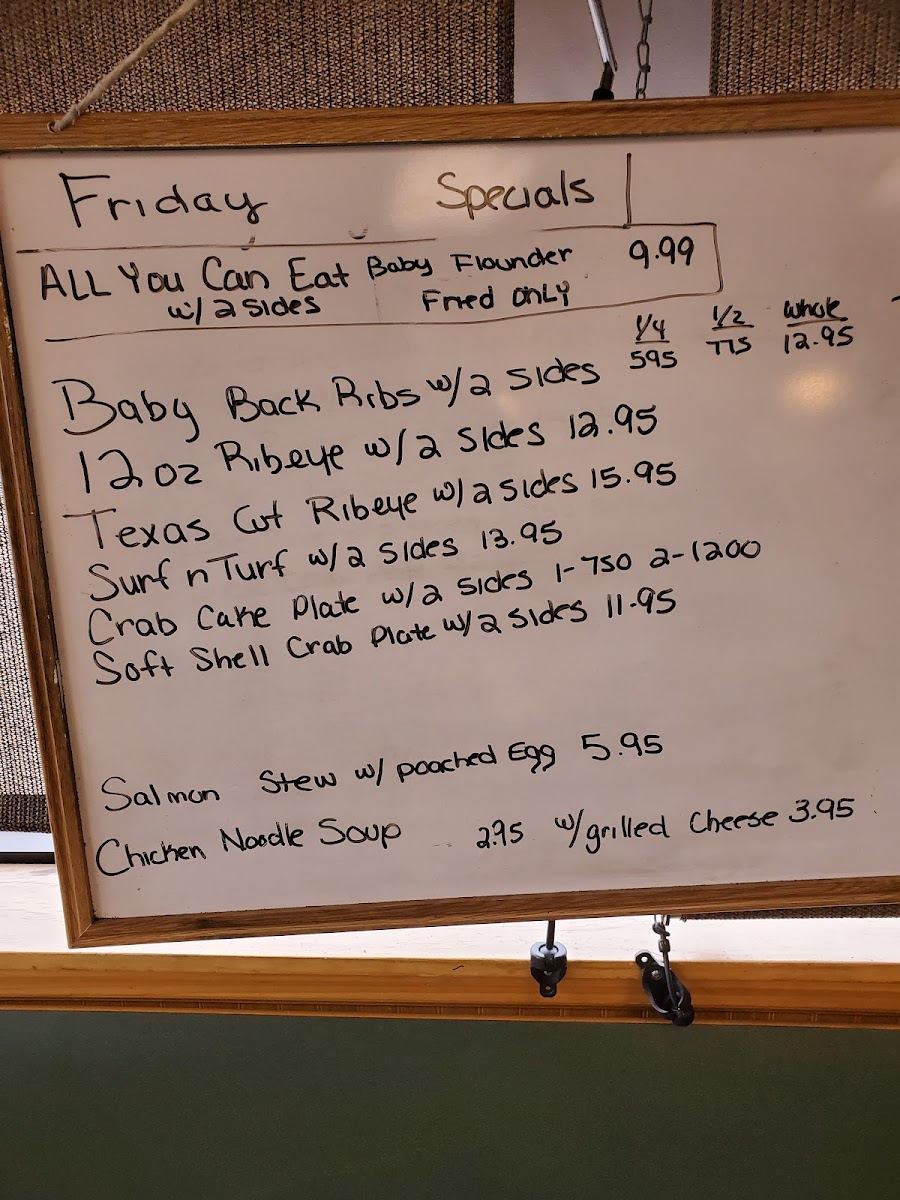 Friday Specials
ALL You Can Eat Baby Flounder 9.99
w/ 2 sides Fried ONLY
1/4 1/2 whole
595 775 12.95
Baby Back Ribs w/2 sides
12 oz Ribeye w/2 Sides 12.95
Texas Cut Ribeye w/2 sides 15.95
Surf n Turf w/2 sides 13.95
Crab Cake Plate w/2 sides 1-750 2-1200
Soft Shell Crab Plate w/2 sides 11.95
Salmon Stew w/ poached Egg 5.95
Chicken Noodle Soup 2.95 w/grilled Cheese 3.95